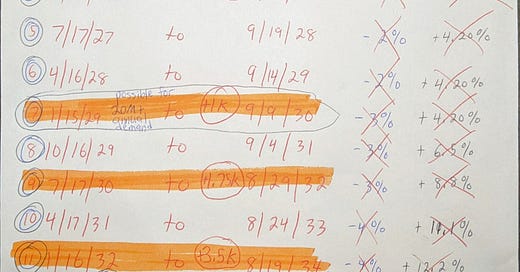 ⑤ 7/17/27 to 9/19/28 - 2% + 4.20%
⑥ 4/16/28 to 9/14/29 - 2% + 4.20%
possible for
⑦ 1/15/29 20M+ to +1K 9/9/30 - 3% + 4.20%
annual
demand
⑧ 10/16/29 to 9/4/31 - 3% + 6.5%
⑨ 7/17/30 to 1.75K 8/29/32 - 3% + 8.8%
⑩ 4/17/31 to 8/24/33 - 4% + 11.1%
⑪ 1/16/32 to +3.5K 8/19/34 - 4% + 12.2%